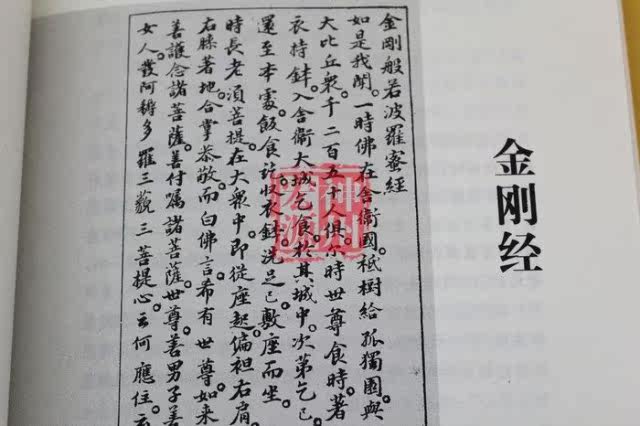 金刚经
金剛般若波羅蜜經
如是我聞。一時佛在舍衛國。祗樹給孤獨園。與
大比丘衆。千二百五十人俱。尒時世尊食時。著
衣持鉢。入舍衛大城乞食。於其城中。次第乞已。
還至本處。飯食訖。收衣鉢。洗足已。敷座而坐。
時長老須菩提。在大衆中。即從座起。偏袒右肩。
右膝著地。合掌恭敬。而白佛言。希有世尊。如來
善護念諸菩薩。善付囑諸菩薩。世尊。善男子善
女人。發阿耨多羅三藐三菩提心。云何應住。云